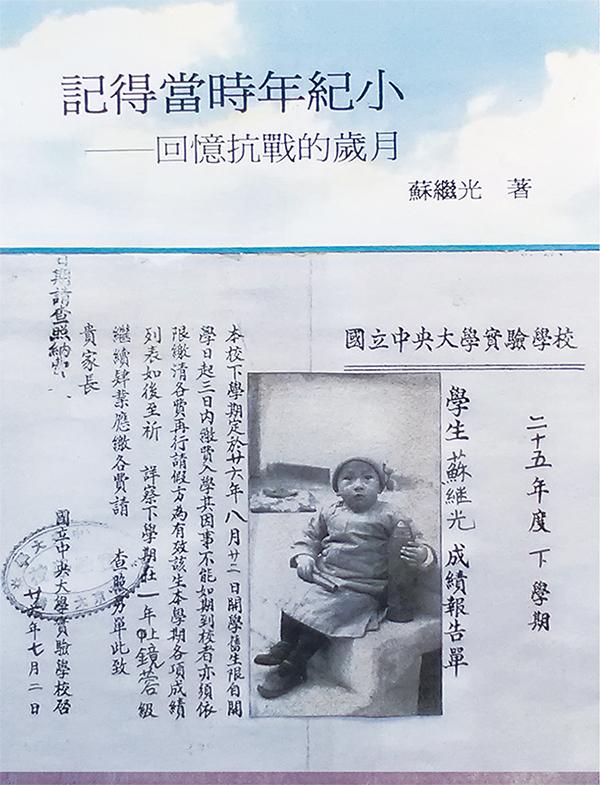 記得當時年紀小
——回憶抗戰的歲月
蘇繼光 著
國立中央大學實驗學校
二十五年度下學期
學生 蘇继光 成績報告單
本校下學期定於廿六年八月廿二日開學舊生限自開
學日起三日內繳費入學其因事不能如期到校者亦須依
限繳清各費再行請假方為有效該生本學期各項成績
列表如後至祈 詳察下學期在一年 鏡蓉級
繼續肄業應繳各費請 查照另單此致
貴家長
國立中央大學實驗學校啓
廿六年七月二日
日期請查照納費